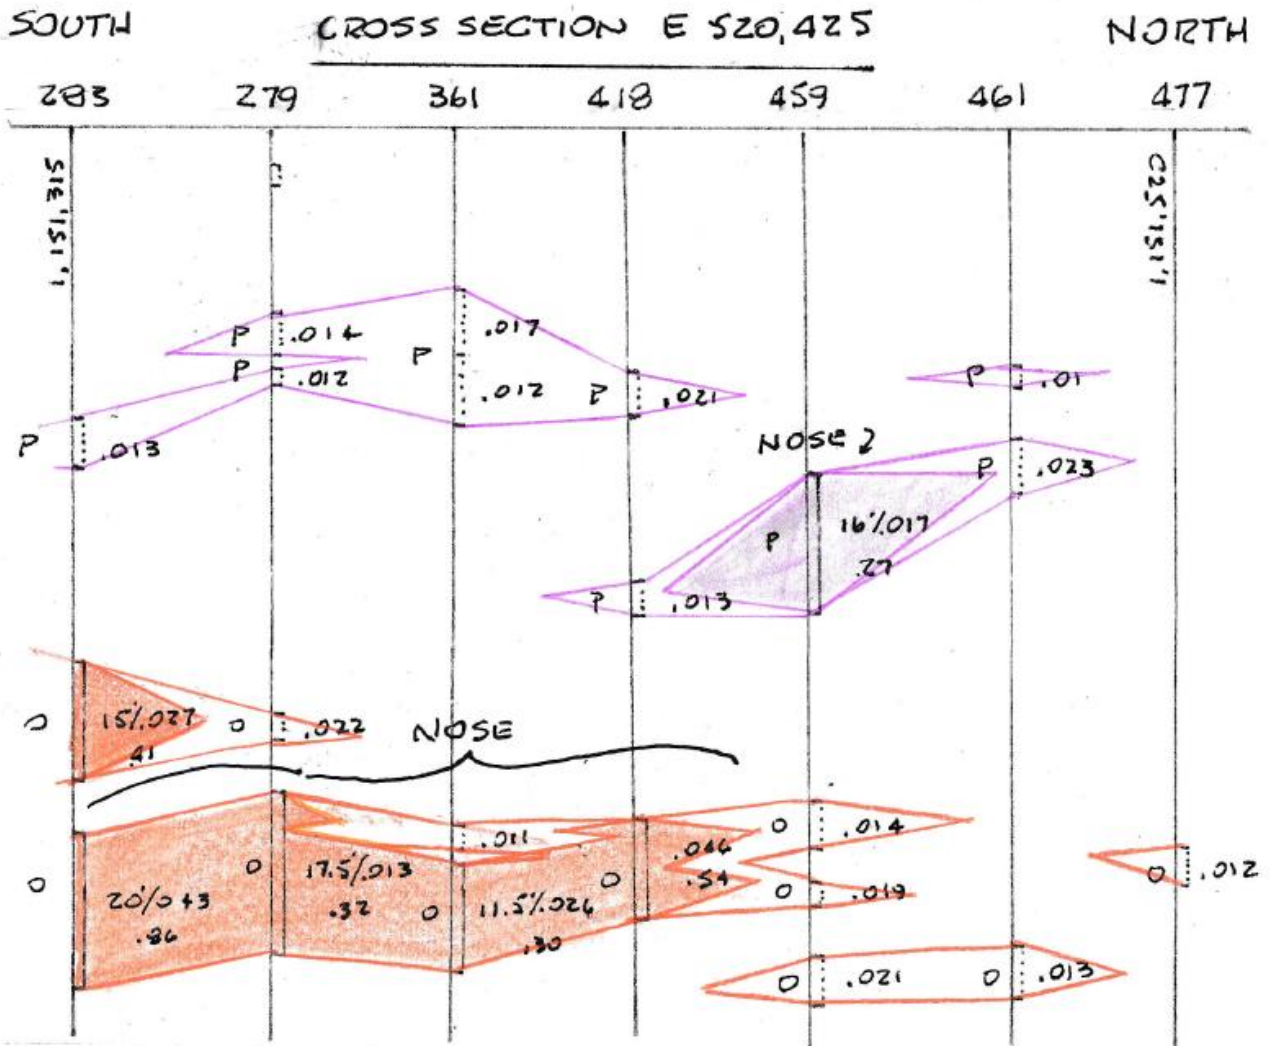 SOUTH CROSS SECTION E 520,425 NORTH
283 279 361 418 459 461 477
1,151,315
1,151,520
P .014
.017
P
P .012
.012
P .021
P .01
P .013
NOSE
P .023
P 16'/.017
.27
P .013
O 15'/.027
.41
O .022
NOSE
.011
O .014
.046
O 17.5'/.013
O .012
O 20'/.043
.32
O 11.5'/.026
O .54
O .019
.86
.30
O .021
O .013